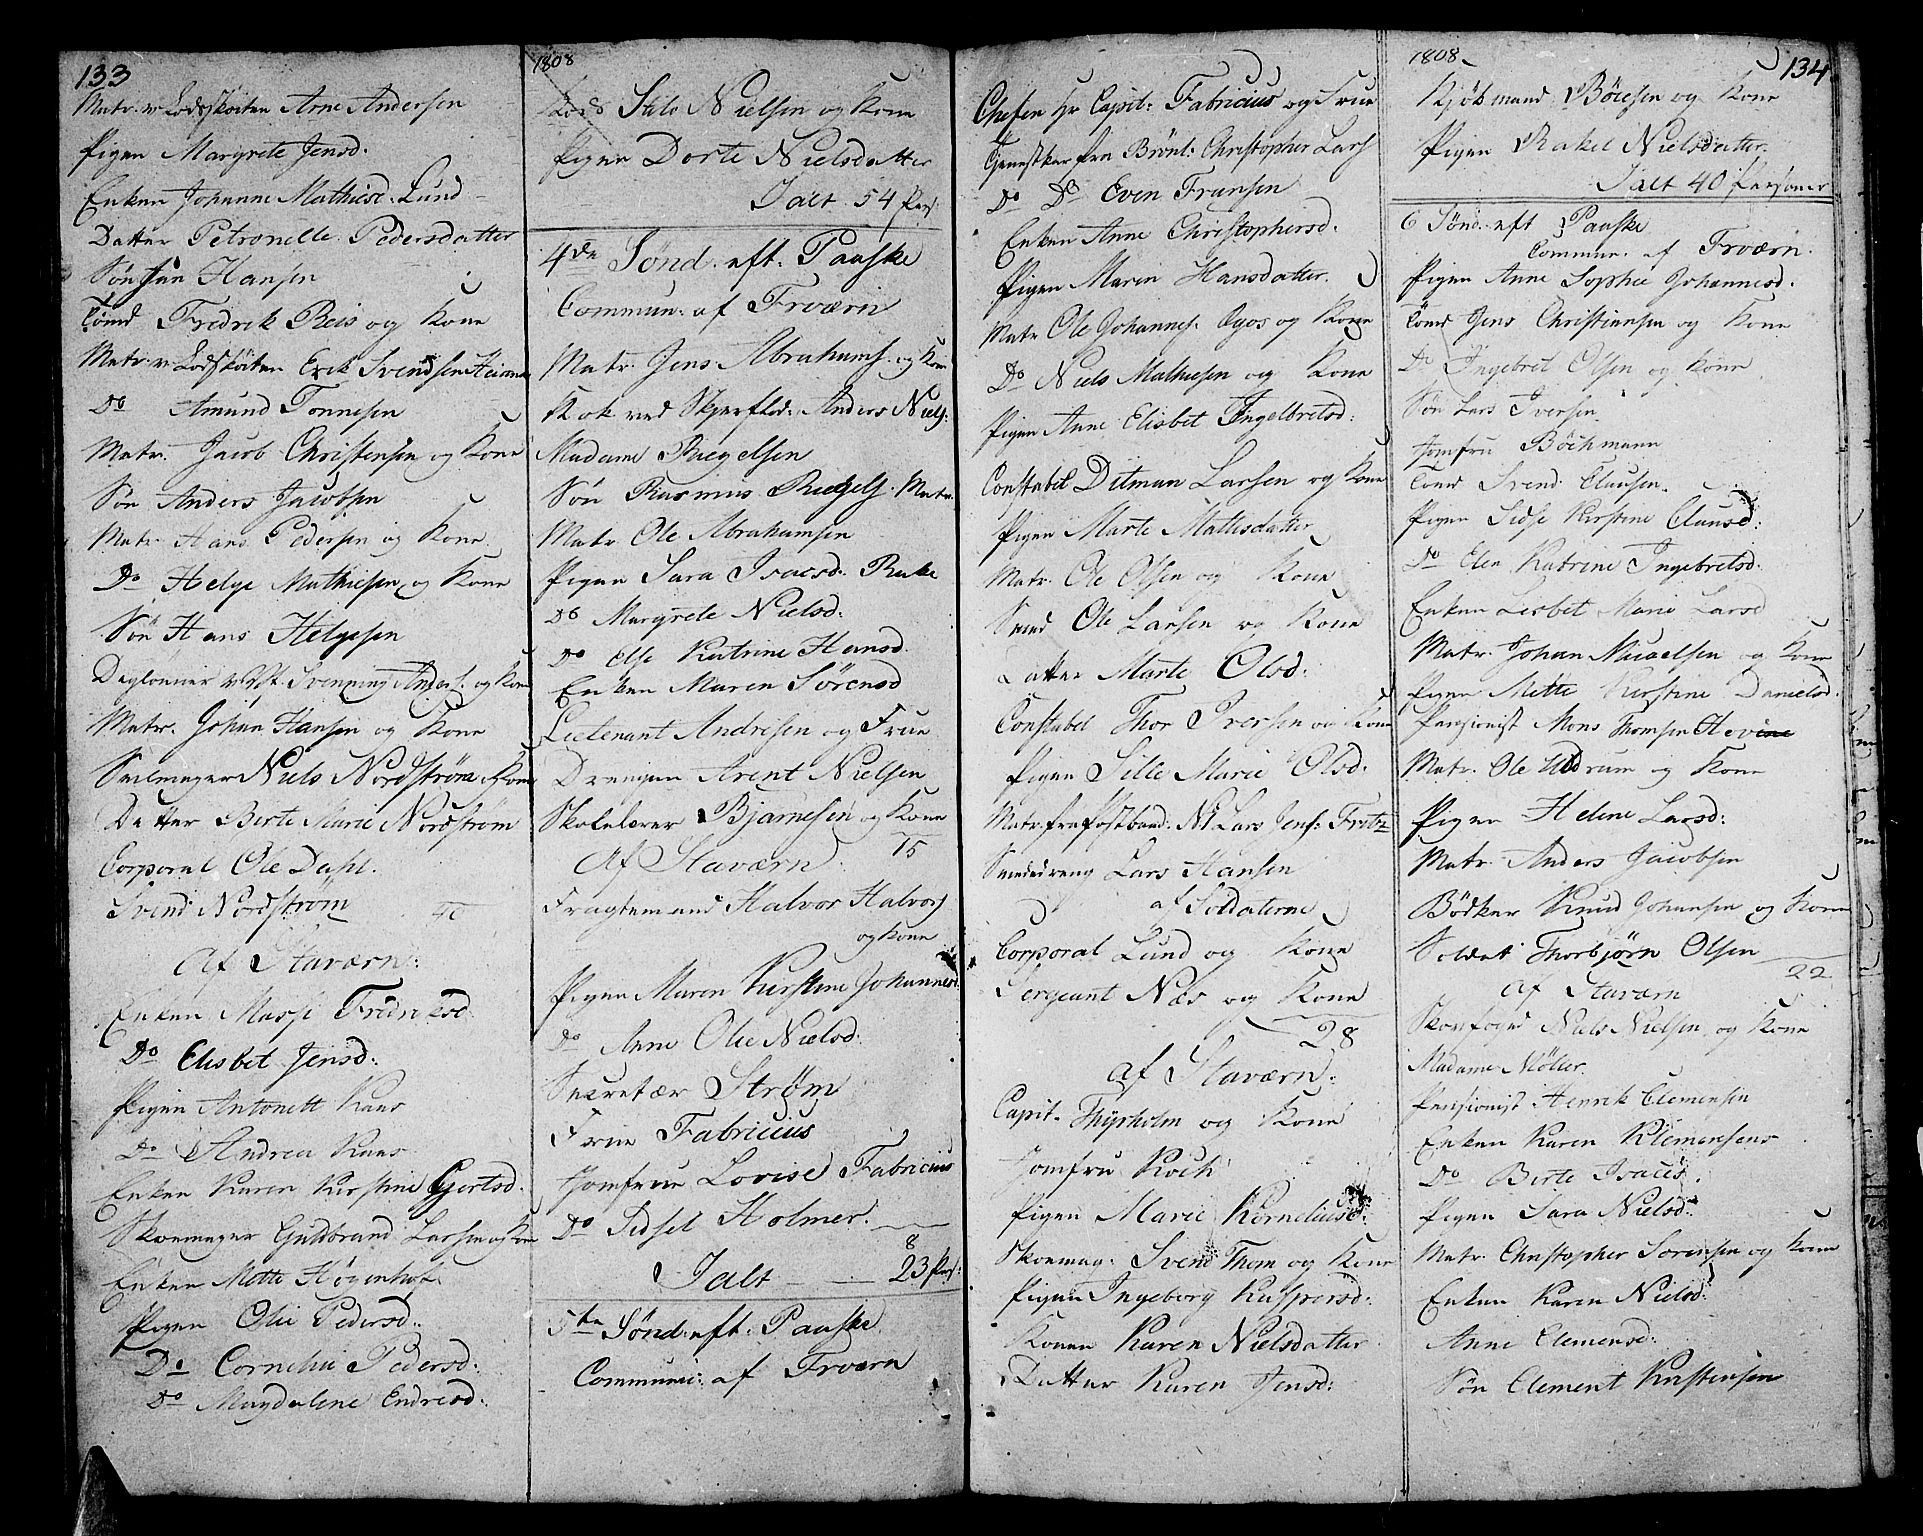 133
Matr. v Lodsköiten Arne Andersen
Pigen Margrete Jensd:
Enken Johanne Mathiesd. Lund
Datter Petronelle Pedersdatter
Sön Jan Hansen
Tömd Fredrik Reis og Kone
Matr. v Lodsköiten Erik Svendsen
Do Amund Tonnesen
Matr. Jacob Christensen og Kone
Sön Anders Jacobsen
Matr. Hans Pedersen og Kone
Do Helge Mathiesen og Kone
Sön Hans Helgesen
Daglönner Svenning Anders. og Kone
Matr. Johan Hansen og Kone
Seilmager Niels Nordström og Kone
Datter Berte Marie Nordström
Corporal Ole Dahl.
Svend Nordström 40
Af Staværn:
Enken Massi Fredriksd
Do Elisbet Jensd:
Pigen Antonett Kaas
Do Andrea Kaas
Enken Karen Kirstine Gjertsd.
Skoemager Guldbrand Larsen og Kone
Enken Mette Høyenhof
Pigen Olie Pedersd:
Do Cornelia Pedersd:
Do Magdalene Endresd:
1808
Lods Sals Nielsen og Kone
Pigen Dorte Nielsdatter
Ialt 54 Pers:
4de Sønd. eft. Paaske
Commun: af Frværn
Matr. Jens Abrahams. og Kone
Kok ved Skjærflod: Anders Niels:
Madame Riegelsen
Sön Rasmus Riegels. Matr.
Matr Ole Abrahamsen
Pigen Sara Isacsd: Rake
Do Margrete Nielsd:
Do Else Katrine Hansd.
Enken Maren Sörensd
Lieutenant Andresen og Frue
Drengen Arent Nielsen
Skolelærer Bjarnesen og Kone
15
Af Staværn:
Fragtemand Halvor Halvors
og Kone
Pigen Maren Kirstine Johannesd
Do Anne Olie Nielsd:
Secretær Strøm
Frue Fabricius
Jomfrue Lovise Fabricius
Do Sidsel Holmer.
8
Ialt 23 Pers:
5te Sønd: eft: Paaske
Communi: af Frværn
Chefen Hr Capit: Fabricius og Frue
Tjenestkar fra Brönl: Christopher Lars
Do Do Even Fransen
Enken Anne Christophersd.
Pigen Maren Hansdatter.
Matr Ole Johannes. Ogos og Kone
Do Niels Mathiesen og Kone
Pigen Anne Elisbet Ingelbretsd:
Constabel Ditman Larsen og Kone
Pigen Marte Mathisdatter
Matr. Ole Olsen og Kone
Smed Ole Larsen og Kone
Datter Marte Olsd:
Constabel Thor Iversen og Kone
Pigen Sille Marie Olsd:
Matr. fra Postbaad: N1 Lars Jens: Fritz
Smededreng Lars Hansen
af Soldaterne
Corporal Lund og Kone
Sergeant Næs og Kone
28
af Staværn:
Capit. Thyrholm og Kone
Jomfru Koch
Pigen Marie Korneliusd:
Skoemag: Svend Thom og Kone
Pigen Ingeborg Kaspersd:
Konen Karen Nielsdatter
Datter Karen Jensd:
1808
134
Kjöbmand Böiesen og Kone
Pigen Rakel Nielsdatter
Ialt 40 Personer
6 Sönd. eft Paaske
Commun. af Frværn.
Pigen Anne Sophie Johannesd.
Tömd Jens Christiansen og Kone
Do Ingebret Olsen og Kone
Sön Lars Iversen
Jomfru Böchmann
Tömd Svend Clausen
Pigen Sidse Kirstine Clausd:
Do Elen Katrine Ingebretsd:
Enken Lisbet Marie Larsd
Matr. Johan Nicaelsen og Kone
Pigen Mette Kirstine Danielsd.
Pensionist Mons Thomsen Hovine
Matr. Ole Uldrum og Kone
Pigen Helene Larsd:
Matr. Anders Jacobsen
Bödker Knud Johansen og Kone
Soldat Thorbjörn Olsen
22
af Staværn
Skovfoged Niels Nielsen og Kone
Madame Möller.
Pensionist Henrik Clemensen
Enken Karen Klemensens
Do Berte Isacs.
Pigen Sara Nielsd:
Matr. Christopher Sorensen og Kone
Enken Karen Nielsd:
Anne Clemensd:
Sön Clement Kristensen